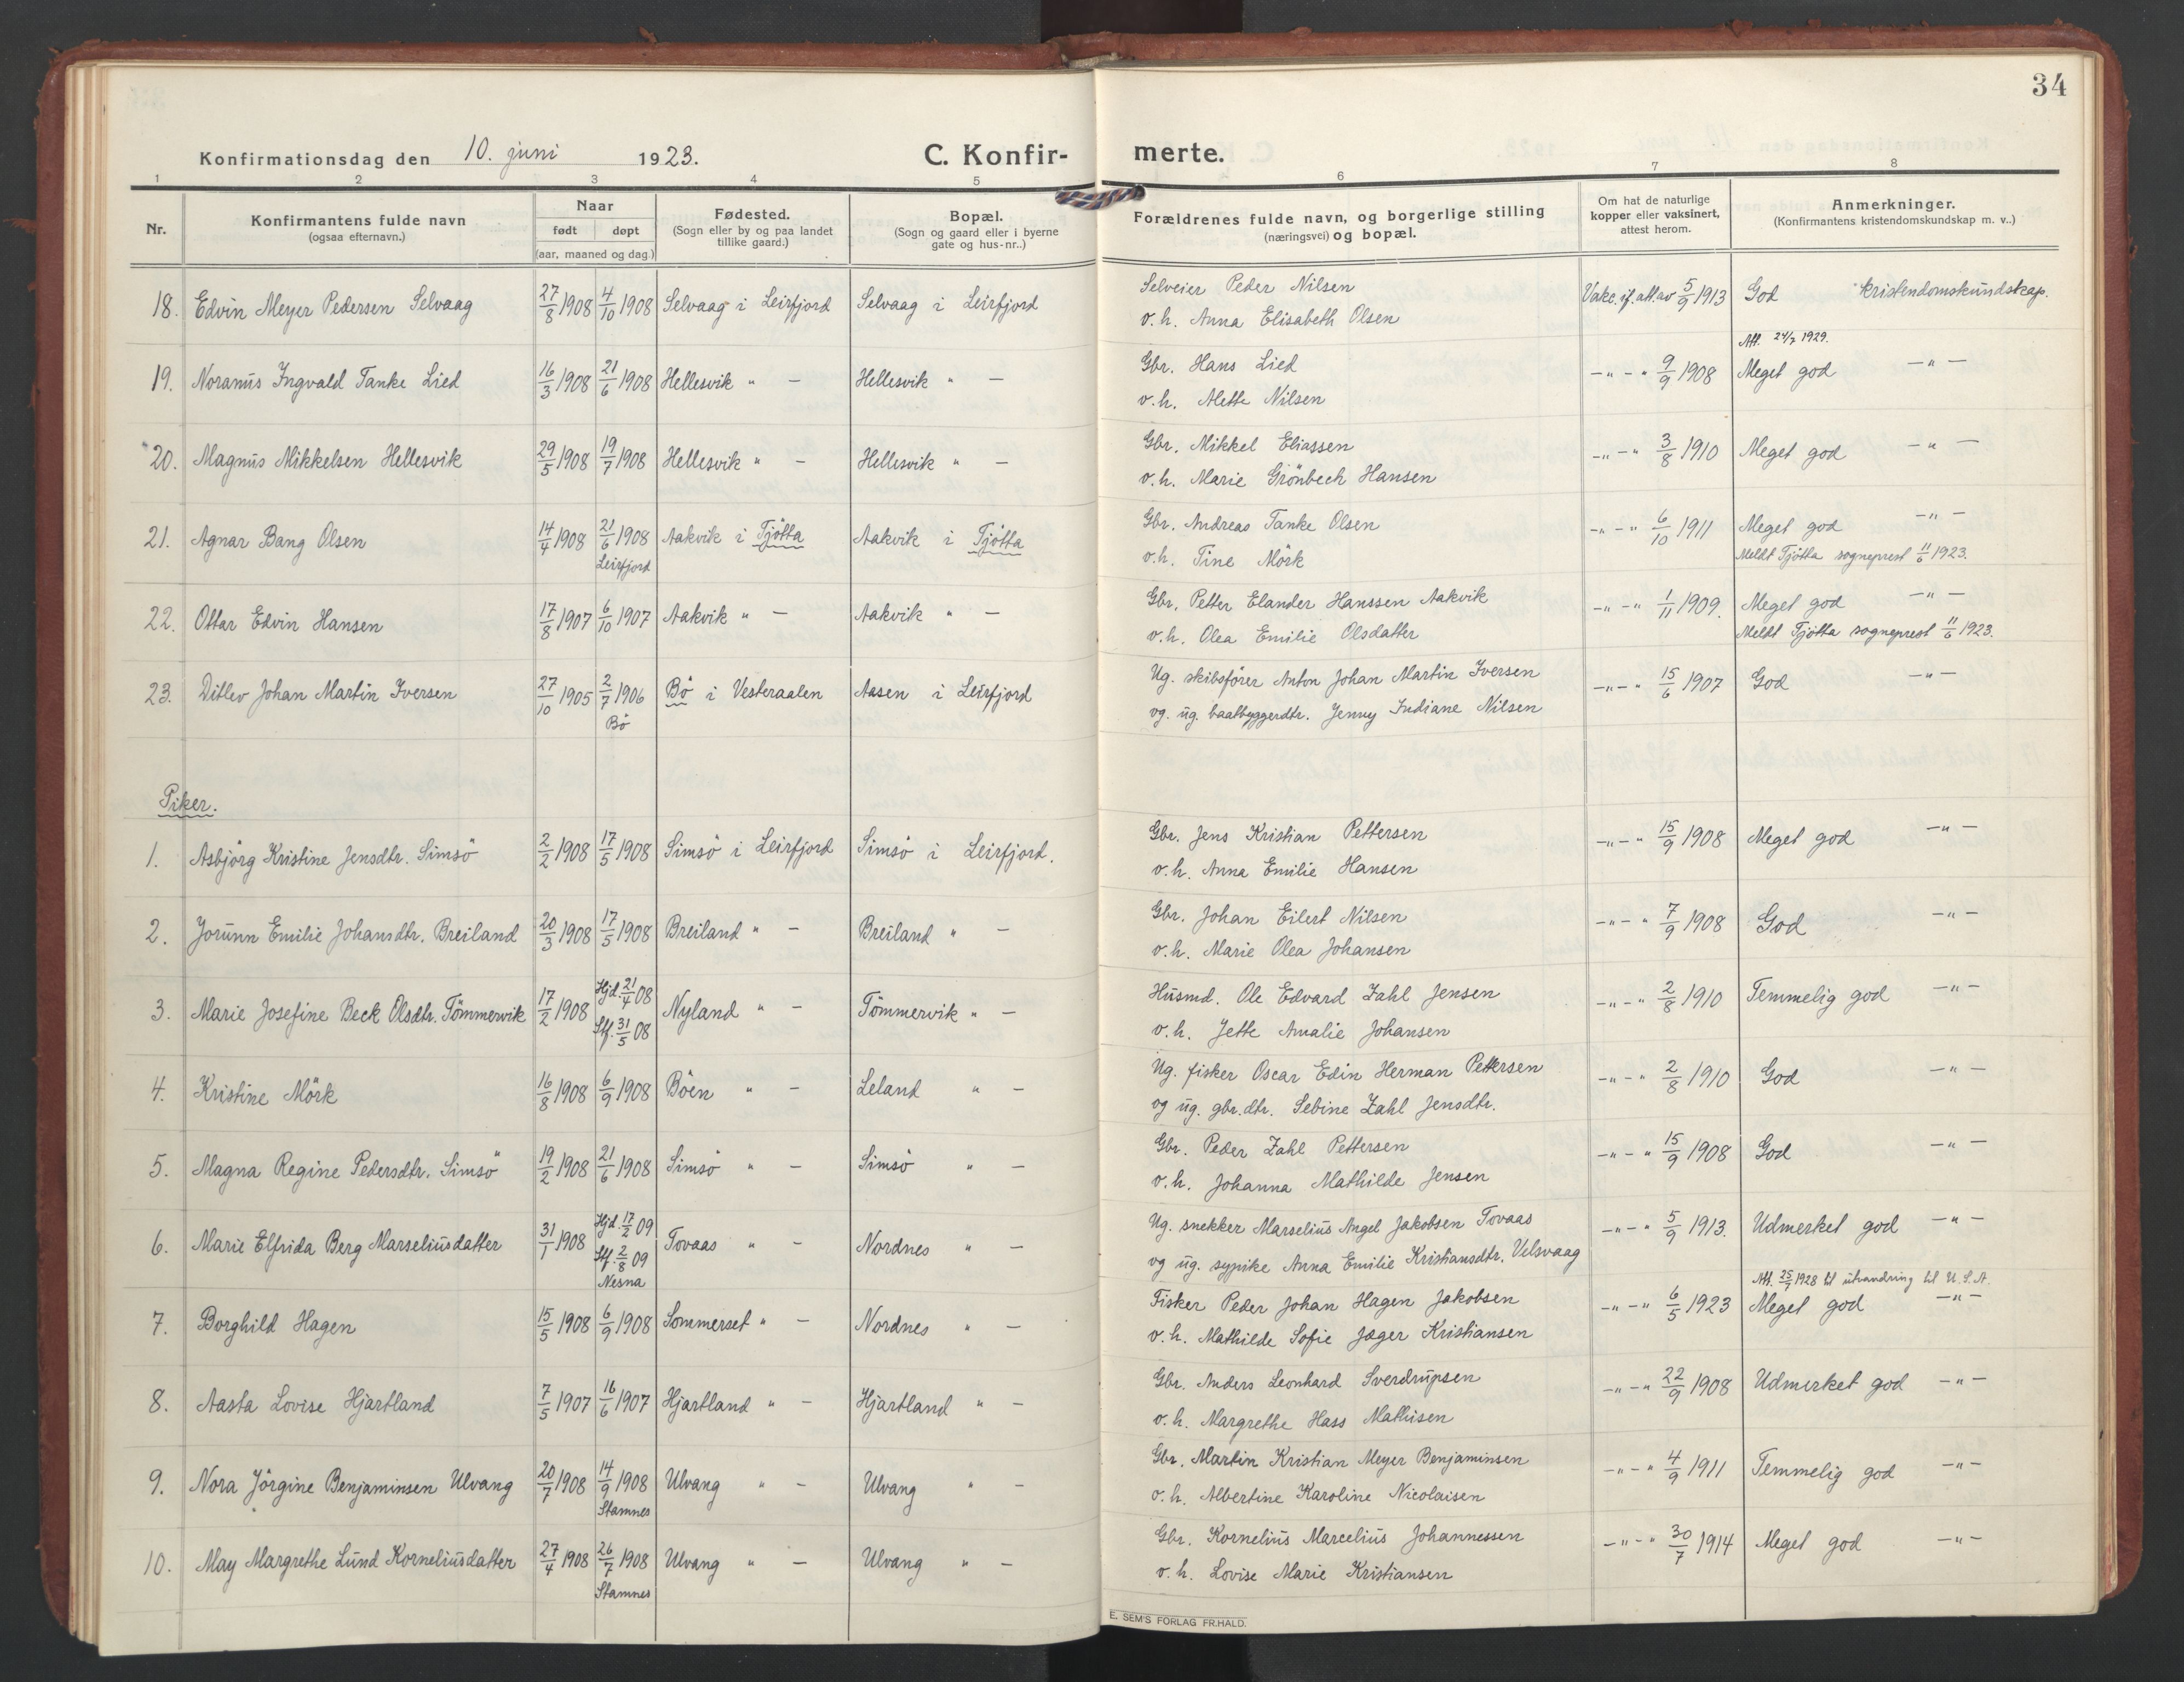 34
Konfirmationsdag den 10. juni 1923. C. Konfir-
merte.
1 2 3 4 5 6 7 8
Nr.
Konfirmantens fulde navn
(ogsaa efternavn.)
Naar
født døpt
(aar, maaned og dag.)
Fødested.
(Sogn eller by og paa landet
tillike gaard.)
Bopæl.
(Sogn og gaard eller i byerne
gate og hus-nr..)
Forældrenes fulde navn, og borgerlige stilling
(næringsvei) og bopæl.
Om hat de naturlige
kopper eller vaksinert,
attest herom.
Anmerkninger.
(Konfirmantens kristendomskundskap m. v..)
18. Edvin Meyer Pedersen Selvaag 27/8 1908 4/10 1908 Selvaag i Leirfjord Selvaag i Leirfjord
Selveier Peder Nilsen
o. h. Anna Elisabeth Olsen
Vakc. if. att. av 5/9 1913 God kristendomskundskap.
Att. 24/7 1929.
19. Noranus Ingvald Tanke Lied 16/3 1908 21/6 1908 Hellesvik " – Hellesvik " –
Gbr. Hans Lied
o. h. Alette Nilsen
–"–" 9/9 1908 Meget god –"–
20. Magnus Mikkelsen Hellesvik 29/5 1908 19/7 1908 Hellesvik " – Hellesvik " –
Gbr. Mikkel Eliassen
o. h. Marie Grönbech Hansen
–"–" 3/8 1910 Meget god –"–
21. Agnar Bang Olsen 14/4 1908 21/6 1908 Aakvik i Tjötta Aakvik i Tjötta
Leirfjord
Gbr. Andreas Tanke Olsen
o. h. Tine Mörk
–"–" 6/10 1911 Meget god –"–
Meldt Tjötta sogneprest 11/6 1923.
22. Ottar Edvin Hansen 17/8 1907 6/10 1907 Aakvik " – Aakvik " –
Gbr. Petter Elander Hanssen Aakvik
o. h. Olea Emilie Olsdatter
–"–" 1/11 1909. Meget god –"–
Meldt Tjötta sogneprest 11/6 1923.
23. Ditlev Johan Martin Iversen 27/10 1905 2/7 1906 Bö i Vesteraalen Aasen i Leirfjord
Bö
Ug. skibsförer Anton Johan Martin Iversen
og. ug. baatbyggerdtr. Jenny Indiane Nilsen
–"–" 15/6 1907 God –"–
Piker.
1. Asbjörg Kristine Jensdtr. Simsö 2/2 1908 17/5 1908 Simsö i Leirfjord Simsö i Leirfjord.
Gbr. Jens Kristian Pettersen
o. h. Anna Emilie Hansen
–"–" 15/9 1908 Meget god –"–
2. Jorunn Emilie Johansdtr. Breiland 20/3 1908 17/5 1908 Breiland " – Breiland " –
Gbr. Johan Eilert Nilsen
o. h. Marie Olea Johansen
–"–" 7/9 1908 God –"–
3. Marie Josefine Beck Olsdtr. Tömmervik 17/2 1908 Hjd. 21/4 08 Nyland " – Tömmervik " –
Stf. 31/5 08
Husmd. Ole Edvard Zahl Jensen
o. h. Jette Amalie Johansen
–"–" 2/8 1910 Temmelig god –"–
4. Kristine Mörk 16/8 1908 6/9 1908 Böen " – Leland " –
Ug. fisker Oscar Edin Herman Pettersen
og ug. gbr. dtr. Sebine Zahl Jensdtr.
–"–" 2/8 1910 God –"–
5. Magna Regine Pedersdtr. Simsö 19/2 1908 21/6 1908 Simsö " – Simsö " –
Gbr. Peder Zahl Pettersen
o. h. Johanna Mathilde Jensen
–"–" 15/9 1908 God –"–
6. Marie Elfrida Berg Marseliusdatter 31/1 1908 Hjd. 17/2 09 Tovaas " – Nordnes " –
Stf. 2/8 09
Nesna
Ug. snekker Marselius Angel Jakobsen Tovaas
og ug. sypike Anna Emilie Kristiansdtr. Velsvaag
–"–" 5/9 1913. Udmerket god –"–
Att. 25/7 1928 til utvandring til U. S. A.
7. Borghild Hagen 15/5 1908 6/9 1908 Sommerset " – Nordnes " –
Fisker Peder Johan Hagen Jakobsen
o. h. Mathilde Sofie Jæger Kristiansen
–"–" 6/5 1923 Meget god –"–
8. Aasta Lovise Hjartland 7/5 1907 16/6 1907 Hjartland " – Hjartland " –
Gbr. Anders Leonhard Sverdrupsen
o. h. Margrethe Hass Mathisen
–"–" 22/9 1908 Udmerket god –"–
9. Nora Jörgine Benjaminsen Ulvang 20/7 1908 14/9 1908 Ulvang " – Ulvang " –
Stamnes
Gbr. Martin Kristian Meyer Benjaminsen
o. h. Albertine Karoline Nicolaisen
–"–" 4/9 1911 Temmelig god –"–
10. May Margrethe Lund Korneliusdatter 27/4 1908 26/7 1908 Ulvang " – Ulvang " –
Stamnes
Gbr. Kornelius Marcelius Johannessen
o. h. Lovise Marie Kristiansen
–"–" 30/7 1914 Meget god –"–
E. SEM'S FORLAG FR.HALD.